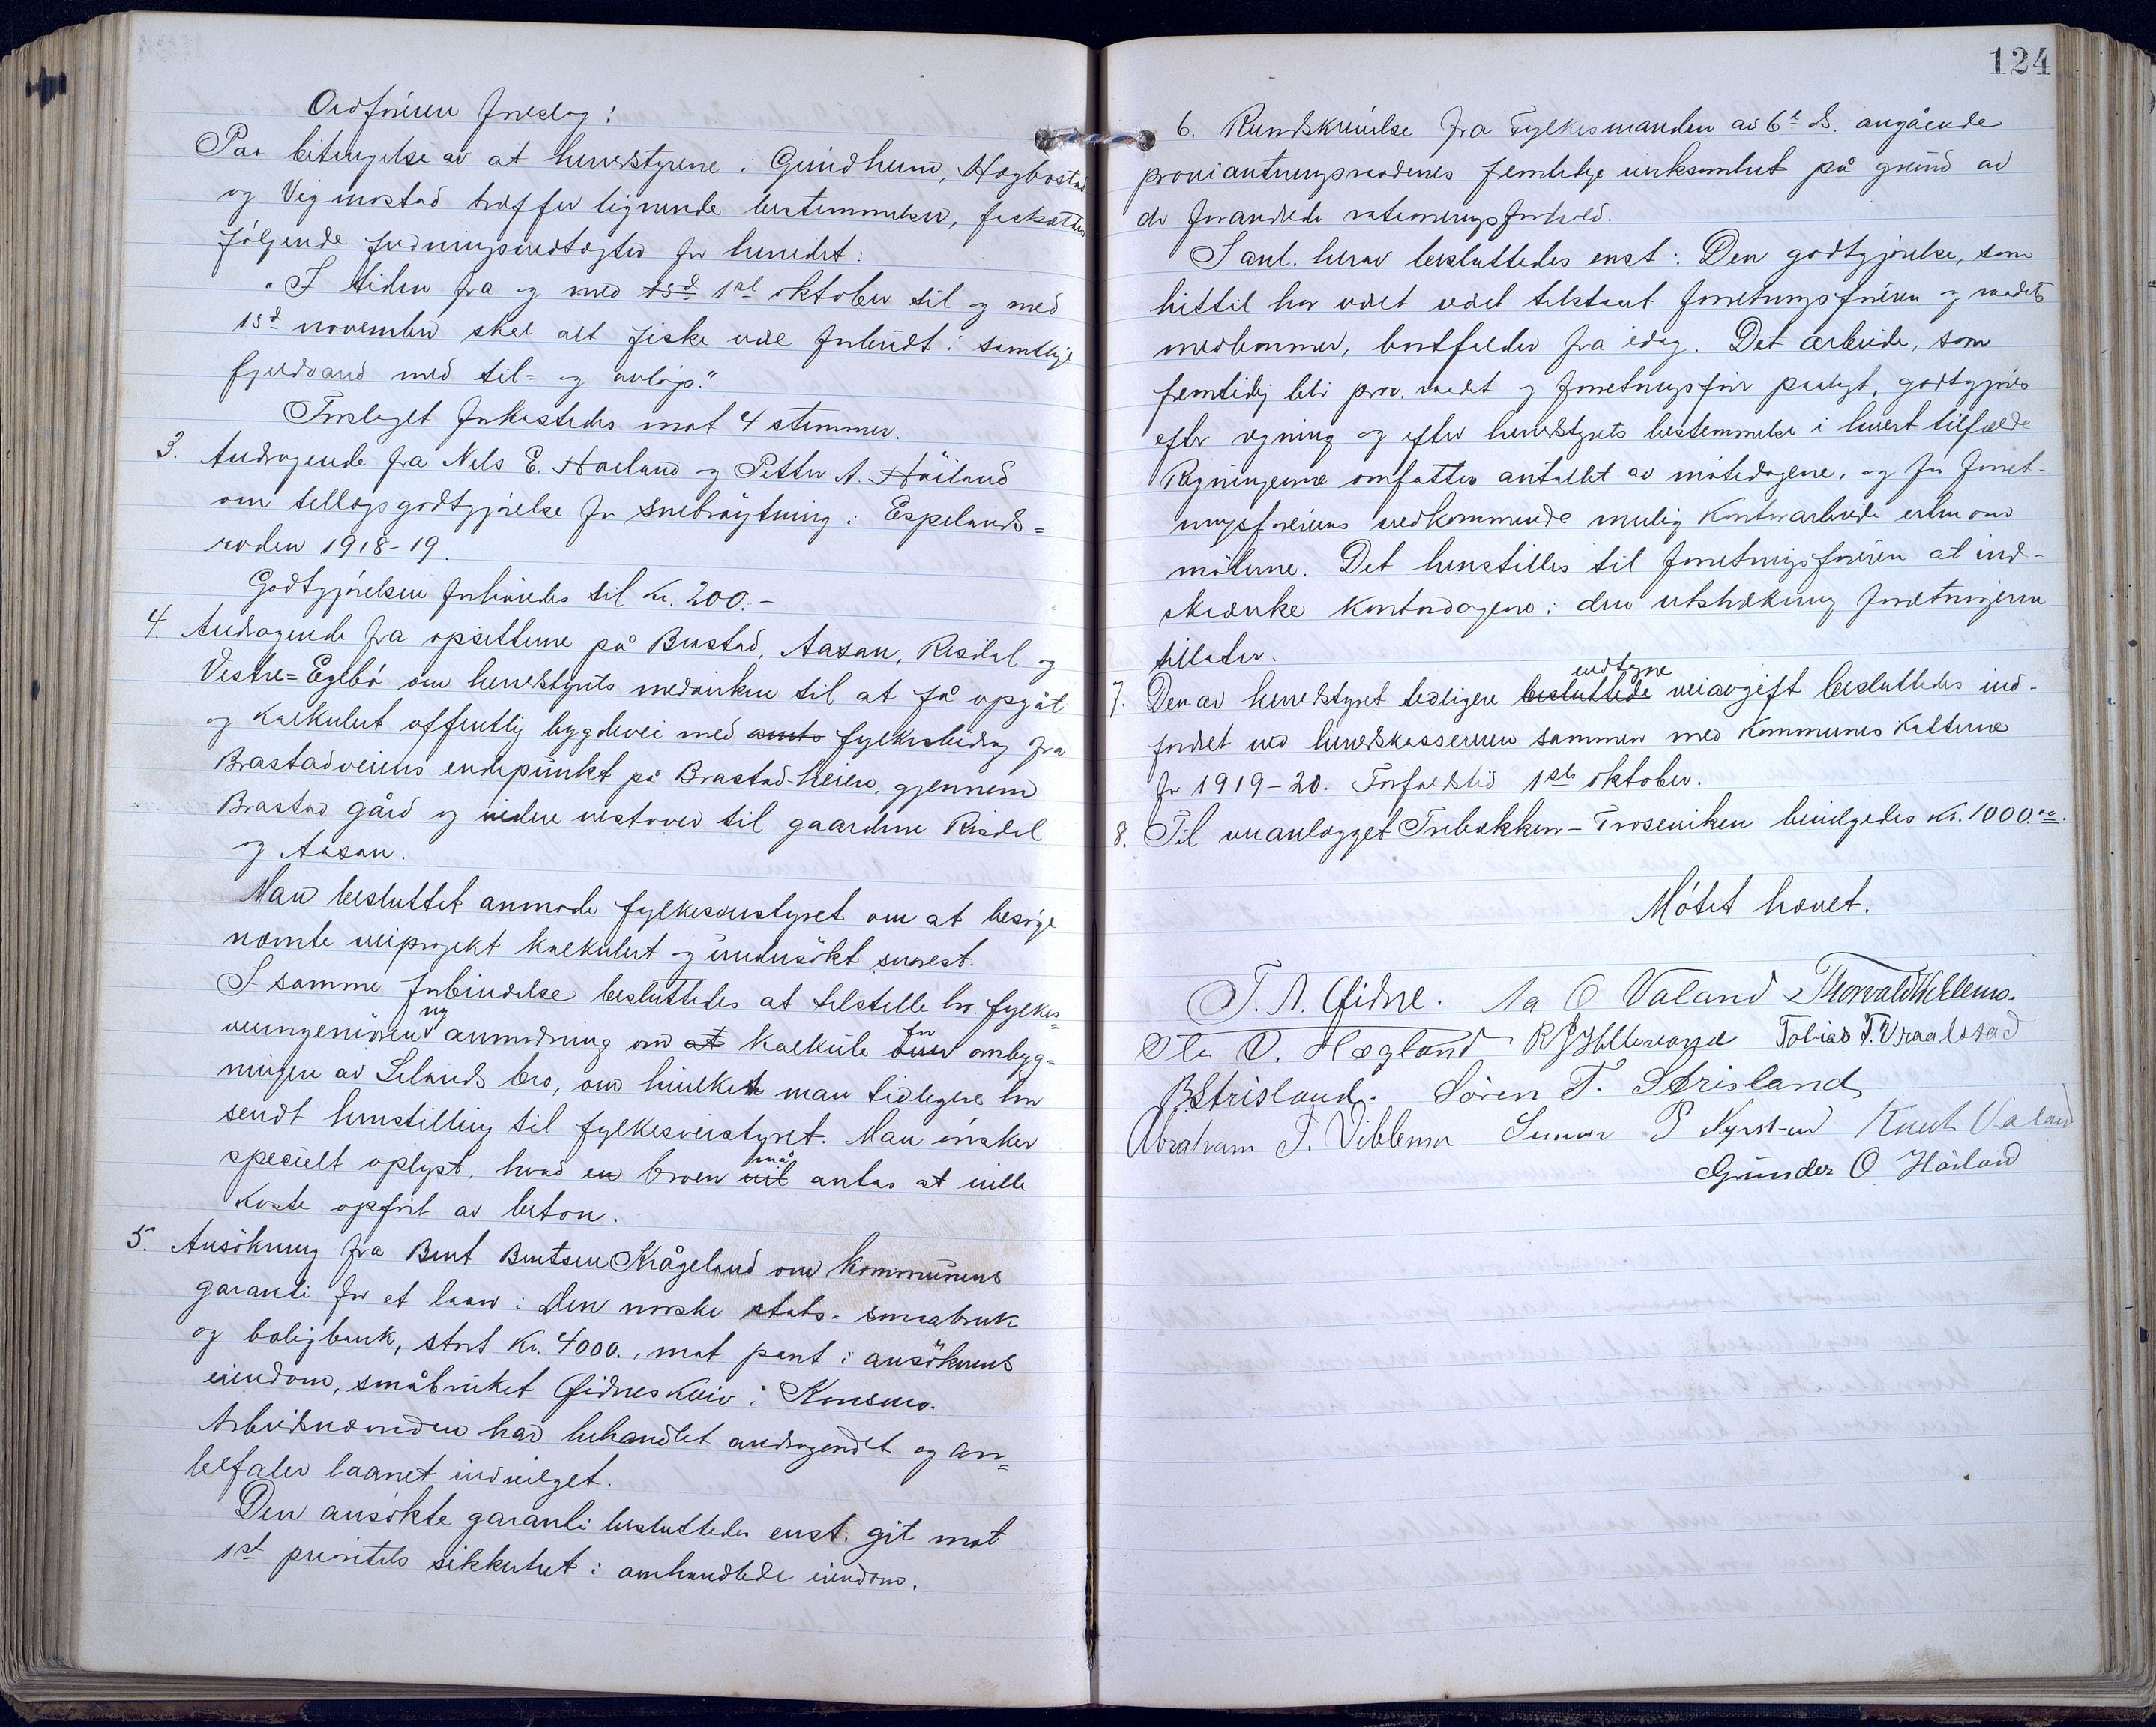 Ordføreren foreslog:
Paa betingelse av at herredstyrene i Grindheim, Hægbostad
og Vigmostad træffer lignende bestemmelser, fastsættes
følgende fredningsvedtægter for herredet:
"I tiden fra og med 15d 1ste oktober til og med
15d november skal alt fiske være forbudt i samtlige
fjeldvand med til- og avløp."
Forslaget forkastedes mot 4 stemmer.
3. Andragende fra Nels E. Høiland og Petter A. Høiland
om tillægsgodtgjørelse for snebrøytning i Espelands-
roden 1918-19.
Godtgjørelsen forhøiedes til kr. 200.-
4. Andragende fra opsitterne på Brastad, Aasan, Risdal og
Vestre-Eglbø om herredstyrets medvirken til at få opgåt
og kalkulert offentlig bygdevei med amts fylkesbidrag fra
Brastadveiens endepunkt på Brastad-heien, gjennem
Brastad gård og videre vestover til gaardene Risdal
og Aasan.
Man besluttet anmode fylkesveistyret om at besørge
nævnte veiprojekt kalkulert og undersøkt snarest.
I samme forbindelse besluttedes at tilstille hr. fylkes-
veiingeniøren ny anmodning om at kalkyle over for ombyg-
ningen av Lelands bro, om hvilket man tidligere har
sendt henstilling til fylkesveistyret. Man ønsker
specielt oplyst, hvad en broen vil må antas at ville
koste opført av beton.
5. Ansøkning fra Bent Bentsen Skågeland om kommunens
garanti for et laan i Den norske stats- smaabruk
og boligbank, stort kr. 4000., mot pant i ansøkerens
eiendom, småbruket Øidneskleiv i Konsmo.
Arbeidsnemnden har behandlet andragendet og an-
befaler laanet indvilget.
Den ansøkte garanti besluttedes enst. git mot
1st prioritets sikkerhet i omhandlede eiendom.
124
6. Rundskrivelse fra Fylkesmanden av 6te ds. angående
provianteringsraadenes fremtidige virksomhet på grund av
de forandrede rationeringsforhold.
I anl. herav besluttedes enst.: Den godtgjørelse, som
hittil har været tilstaaet forretningsføreren og raadets
medlemmer, bortfalder fra idag. Det arbeide, som
fremtidig blir prov. raadet og forretningsfører paalagt, godtgjøres
efter regning og efter herredstyrets bestemmelse i hvert tilfælde
Regningerne omfatter antallet av møtedagene, og for forret-
ningsførerens vedkommende mulig kontorarbeide utenom
møterne. Det henstilles til forretningsføreren at ind-
skrænke kontordagene i den utstrækning forretningerne
tillater.
7. Den av herredstyret tidligere besluttede vedtagne veiavgift besluttedes ind-
fordret ved herredskassereren sammen med kommuneskatterne
for 1919-20. Forfaldstid 1ste oktober.
8. Til veianlægget Trebækken-Troseviken bevilgedes kr. 1000.00.
Møtet hævet.
T. A. Øidne. Aa O Valand Thorvald Viblemo.
Ole O. Hægland Tobias T. Vraalstad
B. Strisland. Sören T. Strisland
Abraham T. Viblemo Gunnar P Nyrstad Knut Valand
Gunder O Håiland